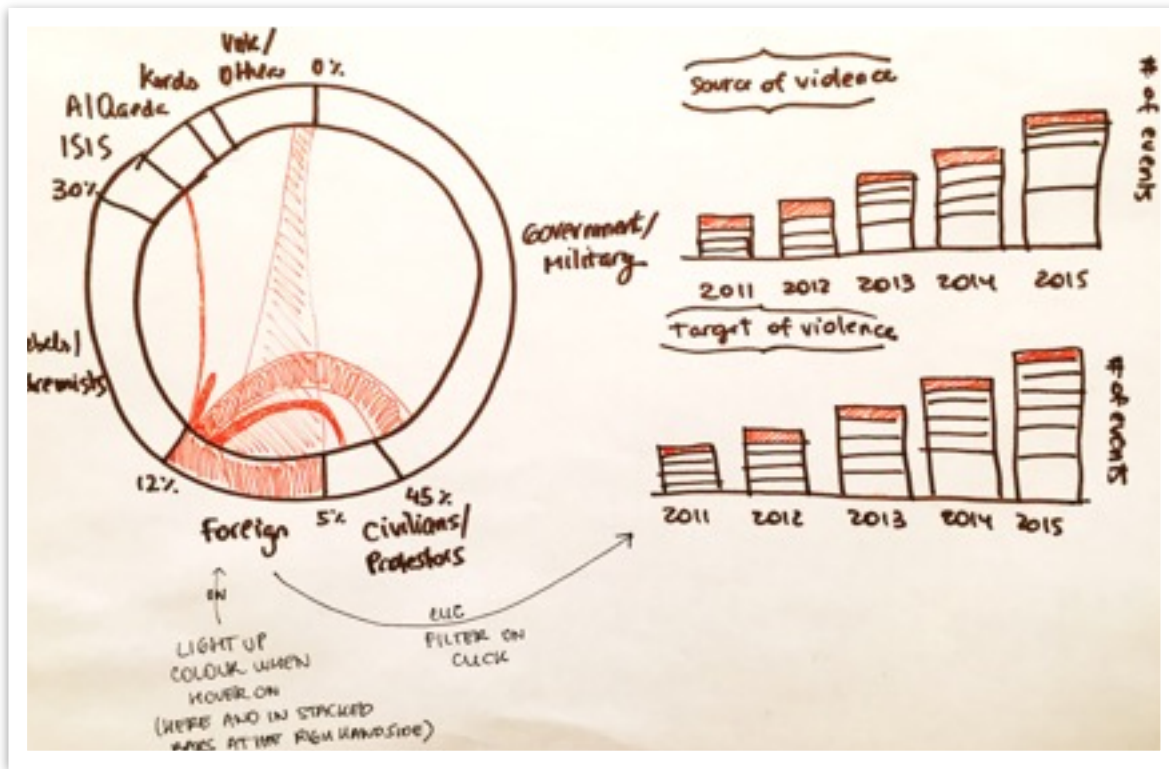 Unk/
Others
0%
Kurds
Al Qaeda
ISIS
30%
ebels/
tremists
12%
Foreign
5%
45%
Civilians/
Protestors
Government/
Military
ON
LIGHT UP
COLOUR WHEN
HOVER ON
(HERE AND IN STACKED
BARS AT THE RIGH HANDSIDE)
FILTER ON
CLICK
Source of violence
# of events
2011 2012 2013 2014 2015
Target of violence
# of events
2011 2012 2013 2014 2015